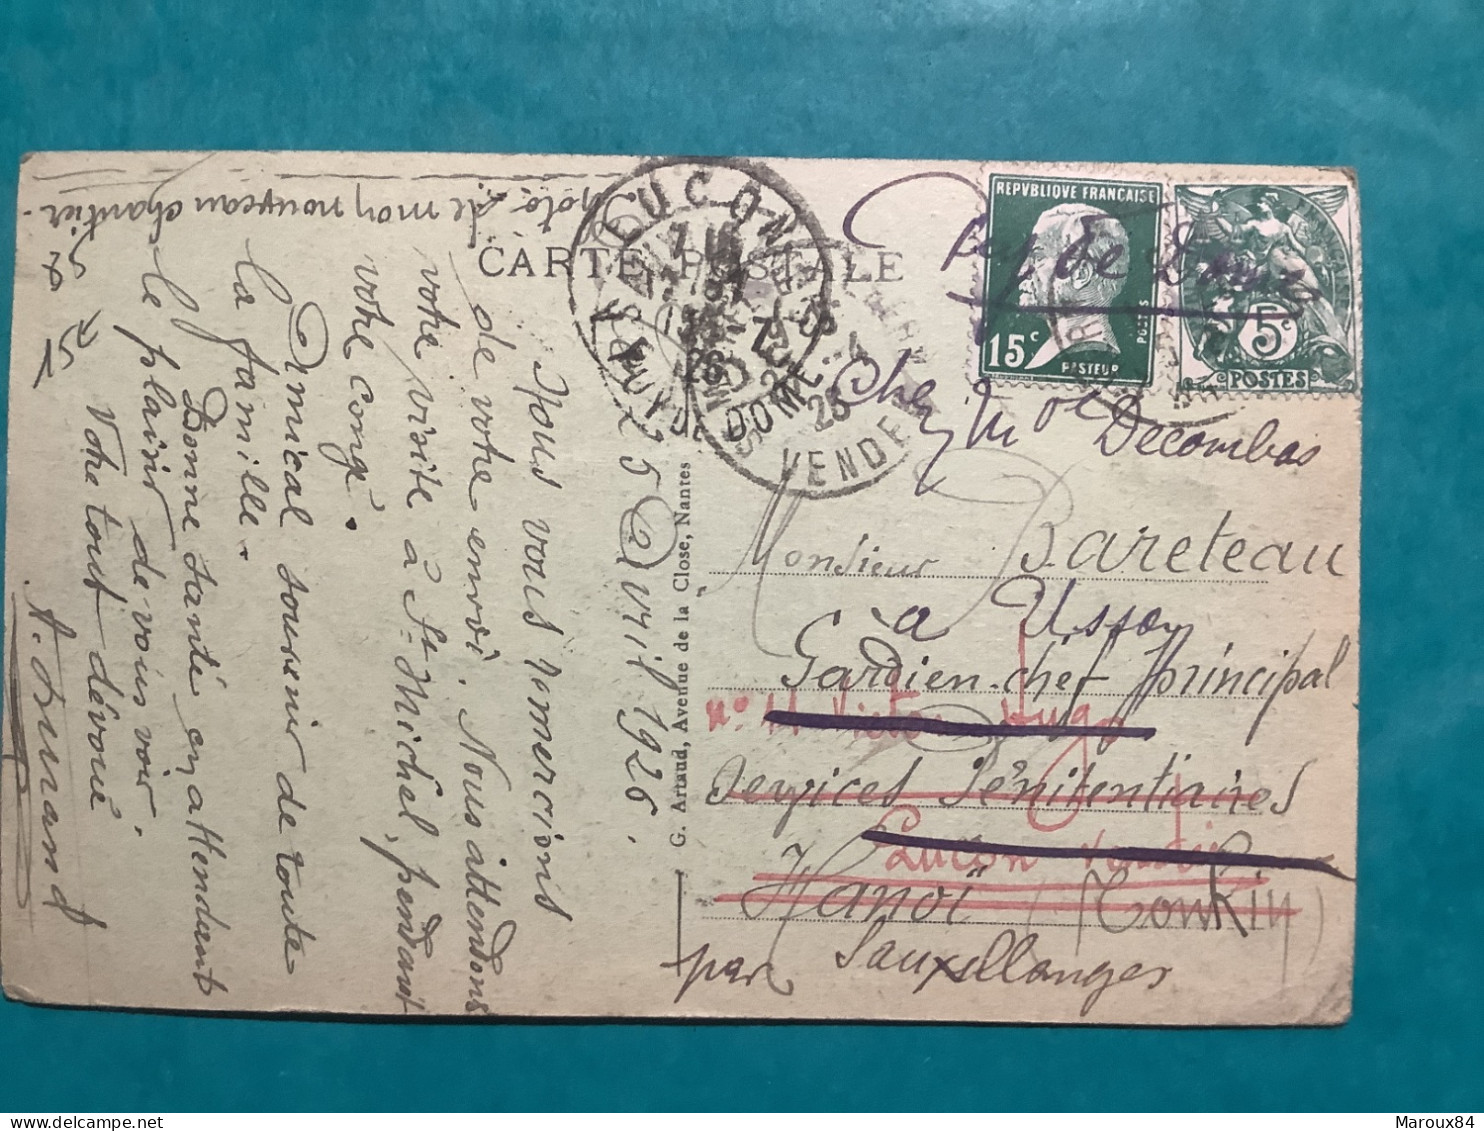 CARTE POSTALE
25 Avril 1926.
Nous vous remercions
de votre envoi. Nous attendons
votre visite à St Michel, pendant
votre congé.
Amical souvenir de toute
la famille.
Bonne santé en attendant
le plaisir de vous voir.
Votre tout dévoué
A. Durand
de mon nouveau chantier.
G. Artaud, Avenue de la Close, Nantes
REPVBLIQUE FRANÇAISE
15c
POSTES
PASTEUR
5c
POSTES
LUÇON
VENDÉE
PUY DE DOME
Puy de Dome
Chez Mr Decombas
Monsieur Bareteau
a Usson
Gardien-chef principal
n° 11 Victor Hugo
Services Pénitentiaires
Luçon Vendée
Hanoï (Tonkin)
par Sauxillanges
Maroux84